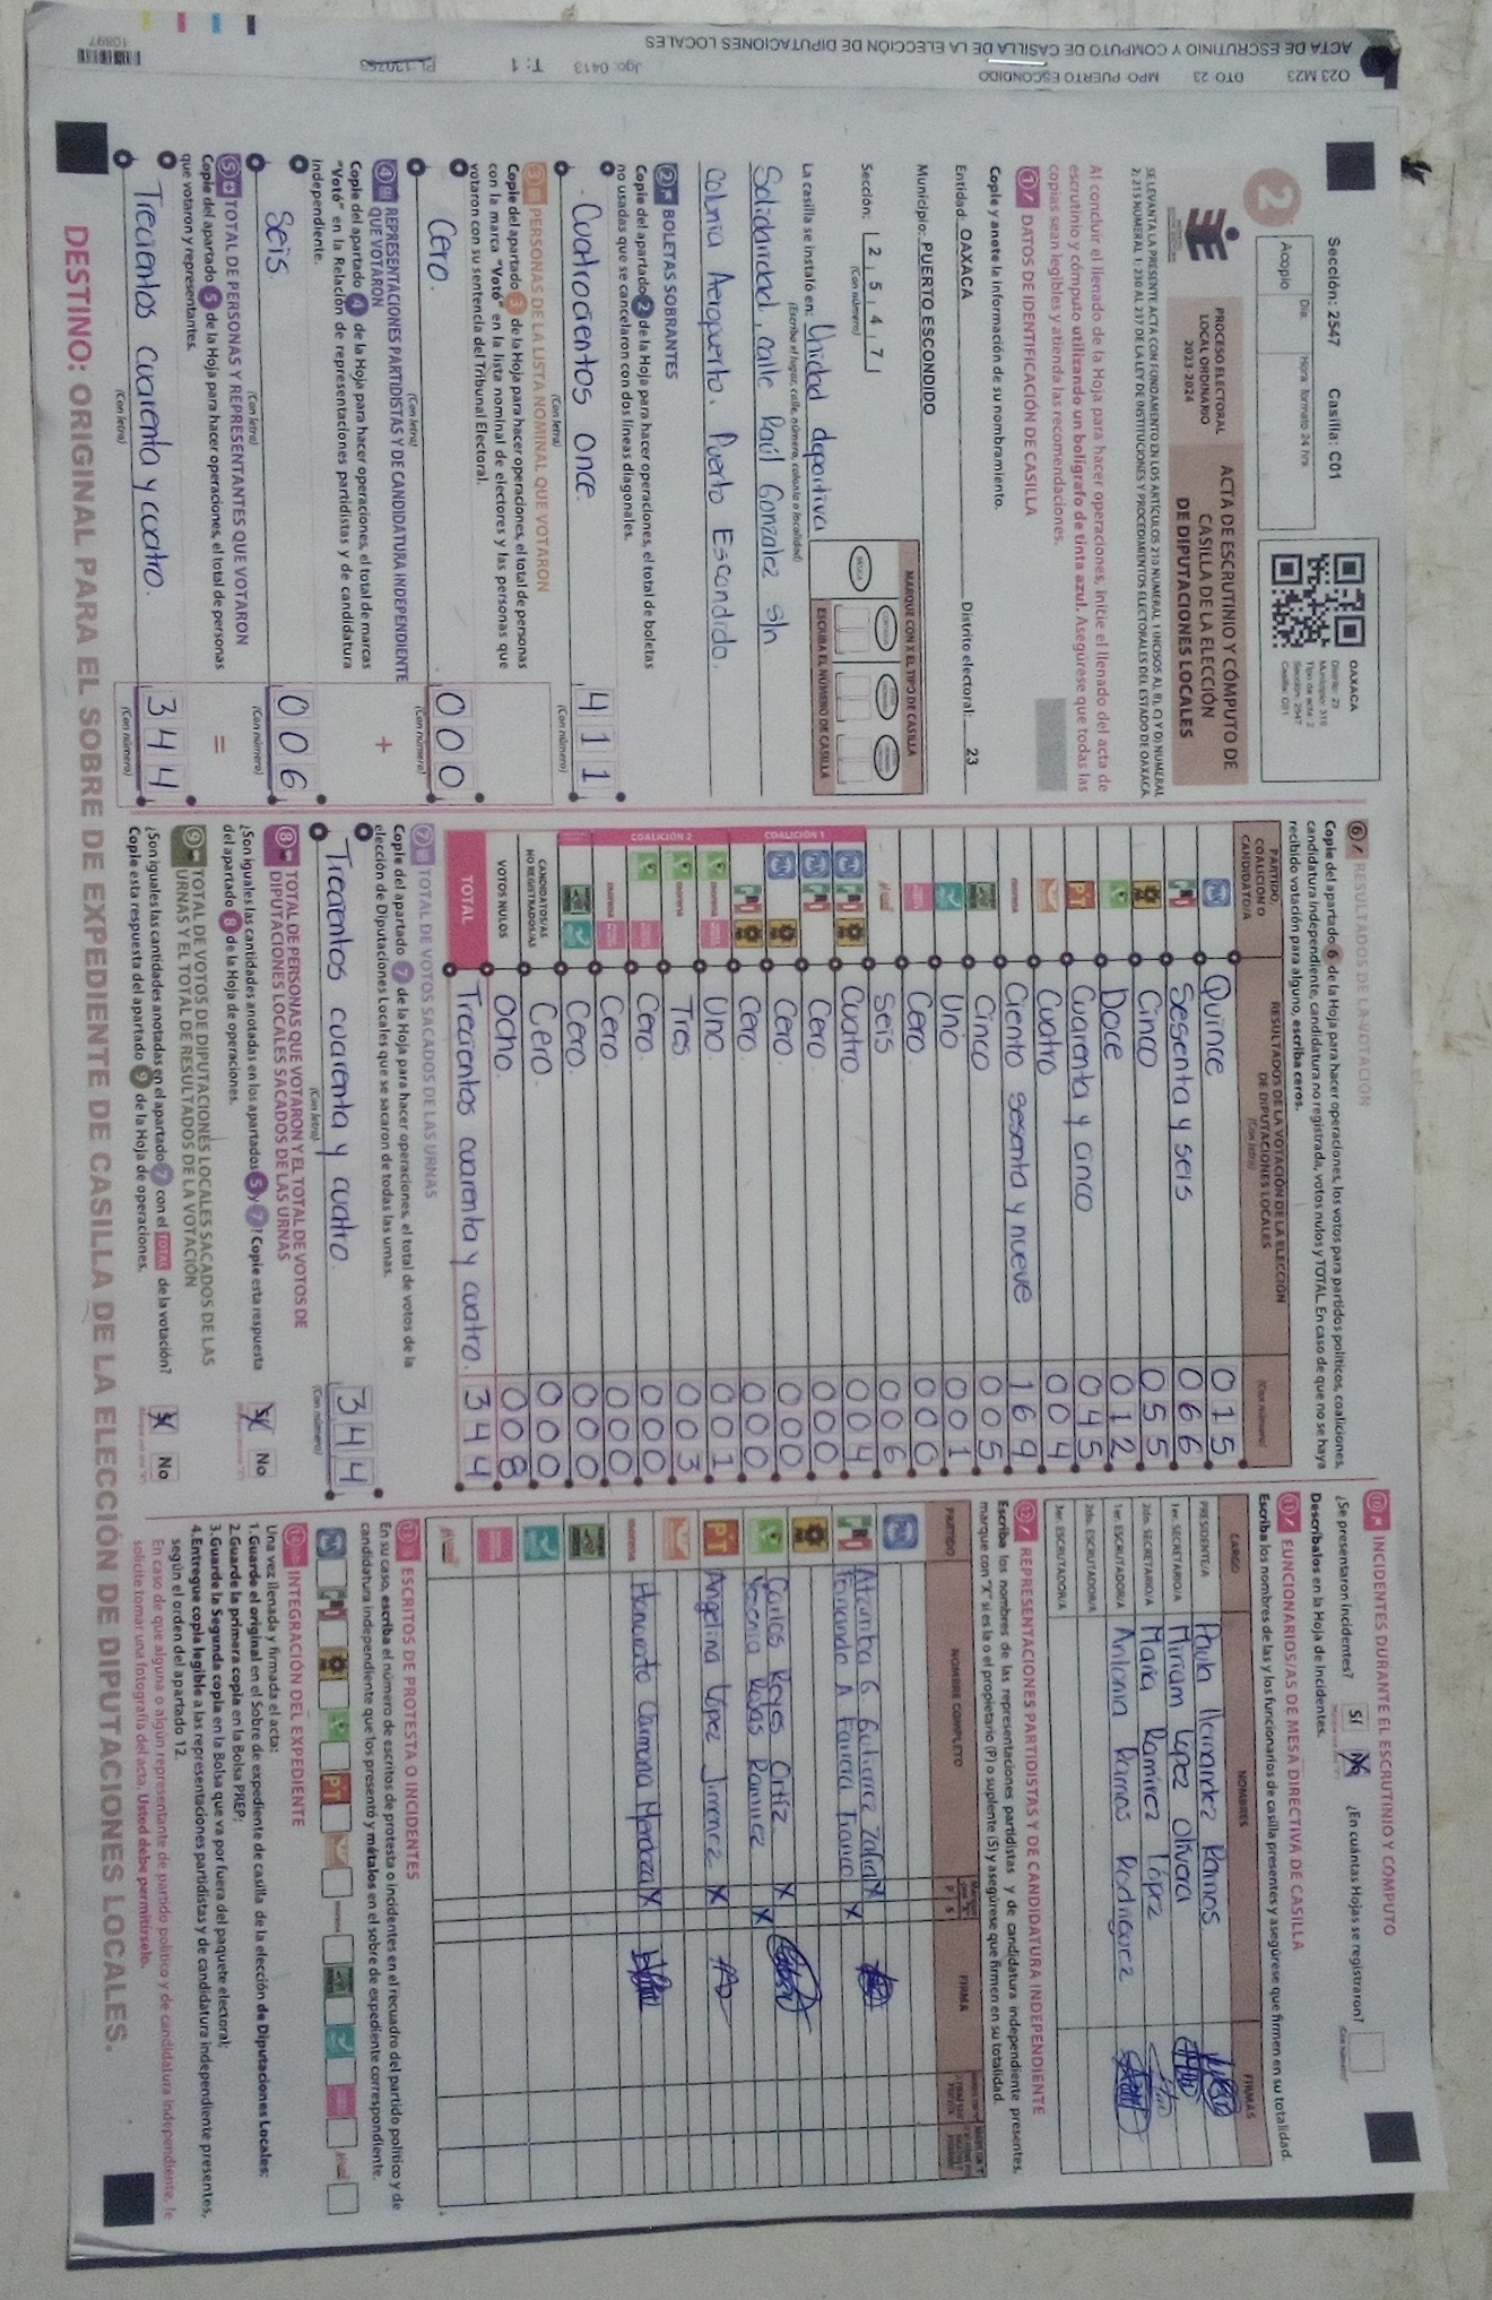 Sección: 2547 Casilla: C01
Día: Hora: formato 24 hrs
2 Acopio
OAXACA
Distrito: 23
Municipio: 318
Tipo de acta: 2
Sección: 2547
Casilla: C01
PROCESO ELECTORAL
LOCAL ORDINARIO
2023-2024
ACTA DE ESCRUTINIO Y CÓMPUTO DE
CASILLA DE LA ELECCIÓN
DE DIPUTACIONES LOCALES
Al concluir el llenado de la Hoja para hacer operaciones, inicie el llenado del acta de
escrutinio y cómputo utilizando un bolígrafo de tinta azul. Asegúrese que todas las
copias sean legibles y atienda las recomendaciones.
1 DATOS DE IDENTIFICACIÓN DE CASILLA
Copie y anote la información de su nombramiento.
Entidad: OAXACA Distrito electoral: 23
Municipio: PUERTO ESCONDIDO
Sección: 2 5 4 7
(Con número)
MARQUE CON X EL TIPO DE CASILLA
ESCRIBA EL NÚMERO DE CASILLA
La casilla se instaló en: Unidad deportiva
(Escriba el lugar, calle, número, colonia o localidad)
Solidaridad, calle Raúl Gonzalez s/n
Colonia Aeropuerto. Puerto Escondido.
2 BOLETAS SOBRANTES
Copie del apartado 2 de la Hoja para hacer operaciones, el total de boletas
no usadas que se cancelaron con dos líneas diagonales.
Cuatrocientos once. 4 1 1
(Con letra) (Con número)
3 PERSONAS DE LA LISTA NOMINAL QUE VOTARON
Copie del apartado 3 de la Hoja para hacer operaciones, el total de personas
con la marca "Votó" en la lista nominal de electores y las personas que
votaron con su sentencia del Tribunal Electoral.
Cero. 0 0 0
(Con letra) (Con número)
4 REPRESENTACIONES PARTIDISTAS Y DE CANDIDATURA INDEPENDIENTE
QUE VOTARON
Copie del apartado 4 de la Hoja para hacer operaciones, el total de marcas
"Votó" en la Relación de representaciones partidistas y de candidatura
independiente.
+
Seis. 0 0 6
(Con letra) (Con número)
5 TOTAL DE PERSONAS Y REPRESENTANTES QUE VOTARON
Copie del apartado 5 de la Hoja para hacer operaciones, el total de personas
que votaron y representantes.
=
Trecientos cuarenta y cuatro. 3 4 4
(Con letra) (Con número)
6 RESULTADOS DE LA VOTACIÓN
Copie del apartado 6 de la Hoja para hacer operaciones, los votos para partidos políticos, coaliciones,
candidatura independiente, candidatura no registrada, votos nulos y TOTAL. En caso de que no se haya
recibido votación para alguno, escriba ceros.
PARTIDO,
COALICIÓN O
CANDIDATO/A
RESULTADOS DE LA VOTACIÓN DE LA ELECCIÓN
DE DIPUTACIONES LOCALES
(Con letra) (Con número)
PAN Quince 0 1 5
PRI Sesenta y seis 0 6 6
Cinco 0 5 5
Doce 0 1 2
PT Cuarenta y cinco 0 4 5
Cuatro 0 0 4
morena Ciento sesenta y nueve 1 6 9
Cinco 0 0 5
Uno 0 0 1
Cero 0 0 0
Seis 0 0 6
COALICIÓN 1
Cuatro. 0 0 4
Cero 0 0 0
Cero. 0 0 0
Cero. 0 0 0
COALICIÓN 2
Uno. 0 0 1
Tres 0 0 3
Cero. 0 0 0
Cero 0 0 0
Cero. 0 0 0
CANDIDATOS/AS
NO REGISTRADOS/AS Cero. 0 0 0
VOTOS NULOS Ocho. 0 0 8
TOTAL Trecientos cuarenta y cuatro. 3 4 4
7 TOTAL DE VOTOS SACADOS DE LAS URNAS
Copie del apartado 7 de la Hoja para hacer operaciones, el total de votos de la
elección de Diputaciones Locales que se sacaron de todas las urnas.
Trecientos cuarenta y cuatro. 3 4 4
(Con letra) (Con número)
8 TOTAL DE PERSONAS QUE VOTARON Y EL TOTAL DE VOTOS DE
DIPUTACIONES LOCALES SACADOS DE LAS URNAS
¿Son iguales las cantidades anotadas en los apartados 5 y 7? Copie esta respuesta
del apartado 8 de la Hoja de operaciones.
Sí No
9 TOTAL DE VOTOS DE DIPUTACIONES LOCALES SACADOS DE LAS
URNAS Y EL TOTAL DE RESULTADOS DE LA VOTACIÓN
¿Son iguales las cantidades anotadas en el apartado 7 con el TOTAL de la votación?
Copie esta respuesta del apartado 9 de la Hoja de operaciones.
Sí No
10 INCIDENTES DURANTE EL ESCRUTINIO Y CÓMPUTO
¿Se presentaron incidentes? Sí No ¿En cuántas Hojas se registraron?
Descríbalos en la Hoja de Incidentes.
11 FUNCIONARIOS/AS DE MESA DIRECTIVA DE CASILLA
Escriba los nombres de las y los funcionarios de casilla presentes y asegúrese que firmen en su totalidad.
CARGO NOMBRES FIRMAS
PRESIDENTE/A Paula Hernandez Ramos
1er. SECRETARIO/A Miriam Lopez Olivera
2do. SECRETARIO/A Maria Ramírez López
1er. ESCRUTADOR/A Antonia Ramos Rodriguez
2do. ESCRUTADOR/A
3er. ESCRUTADOR/A
12 REPRESENTACIONES PARTIDISTAS Y DE CANDIDATURA INDEPENDIENTE
Escriba los nombres de las representaciones partidistas y de candidatura independiente presentes,
marque con "X" si es la o el propietario (P) o suplente (S) y asegúrese que firmen en su totalidad.
PARTIDO NOMBRE COMPLETO P S FIRMA
X
X
Carlos Reyes Ortiz X
Rojas Ramirez X
PT Angelina López Jimenez X
morena Carmona Mendoza X
13 ESCRITOS DE PROTESTA O INCIDENTES
En su caso, escriba el número de escritos de protesta o incidentes en el recuadro del partido político y de
candidatura independiente que los presentó y métalos en el sobre de expediente correspondiente.
14 INTEGRACIÓN DEL EXPEDIENTE
Una vez llenada y firmada el acta:
1. Guarde el original en el Sobre de expediente de casilla de la elección de Diputaciones Locales;
2. Guarde la primera copia en la Bolsa PREP;
3. Guarde la Segunda copia en la Bolsa que va por fuera del paquete electoral;
4. Entregue copia legible a las representaciones partidistas y de candidatura independiente presentes,
según el orden del apartado 12.
En caso de que alguna o algún representante de partido político y de candidatura independiente, le
solicite tomar una fotografía del acta. Usted debe permitírselo.
DESTINO: ORIGINAL PARA EL SOBRE DE EXPEDIENTE DE CASILLA DE LA ELECCIÓN DE DIPUTACIONES LOCALES.
O23 M23 DTO: 23 MPO: PUERTO ESCONDIDO Jgo: 0413 T: 1
ACTA DE ESCRUTINIO Y COMPUTO DE CASILLA DE LA ELECCIÓN DE DIPUTACIONES LOCALES
10897